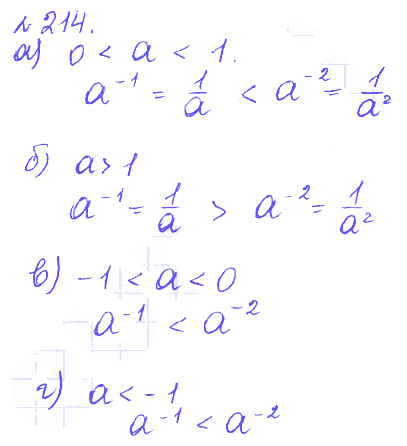 № 214.
а) 0 < a < 1.
a⁻¹ = 1/a < a⁻² = 1/a²
б) a > 1
a⁻¹ = 1/a > a⁻² = 1/a²
в) -1 < a < 0
a⁻¹ < a⁻²
г) a < -1
a⁻¹ < a⁻²